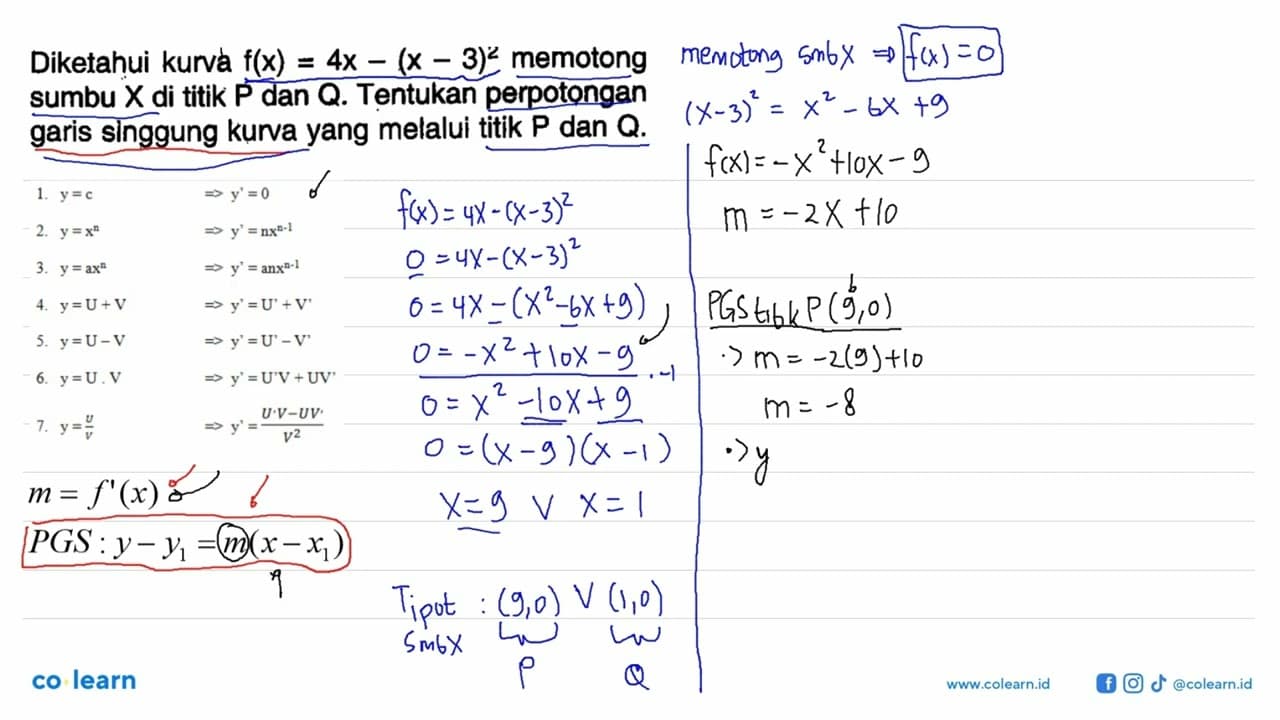 Diketahui kurva f(x) = 4x − (x − 3)² memotong
sumbu X di titik P dan Q. Tentukan perpotongan
garis singgung kurva yang melalui titik P dan Q.
1. y = c => y' = 0
2. y = xⁿ => y' = nxⁿ⁻¹
3. y = axⁿ => y' = anxⁿ⁻¹
4. y = U + V => y' = U' + V'
5. y = U – V => y' = U' – V'
6. y = U . V => y' = U'V + UV'
7. y = U/V => y' = (U'V−UV')/V²
m = f'(x)
PGS : y − y₁ = m(x − x₁)
f(x) = 4x − (x−3)²
0 = 4x − (x−3)²
0 = 4x − (x²−6x+9)
0 = −x² + 10x − 9
. −1
0 = x² − 10x + 9
0 = (x−9)(x−1)
x = 9 V x = 1
Tipot : (9,0) V (1,0)
smbX
P Q
memotong smbX ⇒ f(x) = 0
(x−3)² = x² − 6x + 9
f(x) = −x² + 10x − 9
m = −2x + 10
PGS titik P (9,0)
·> m = −2(9) + 10
m = −8
·> y
co·learn
www.colearn.id
@colearn.id